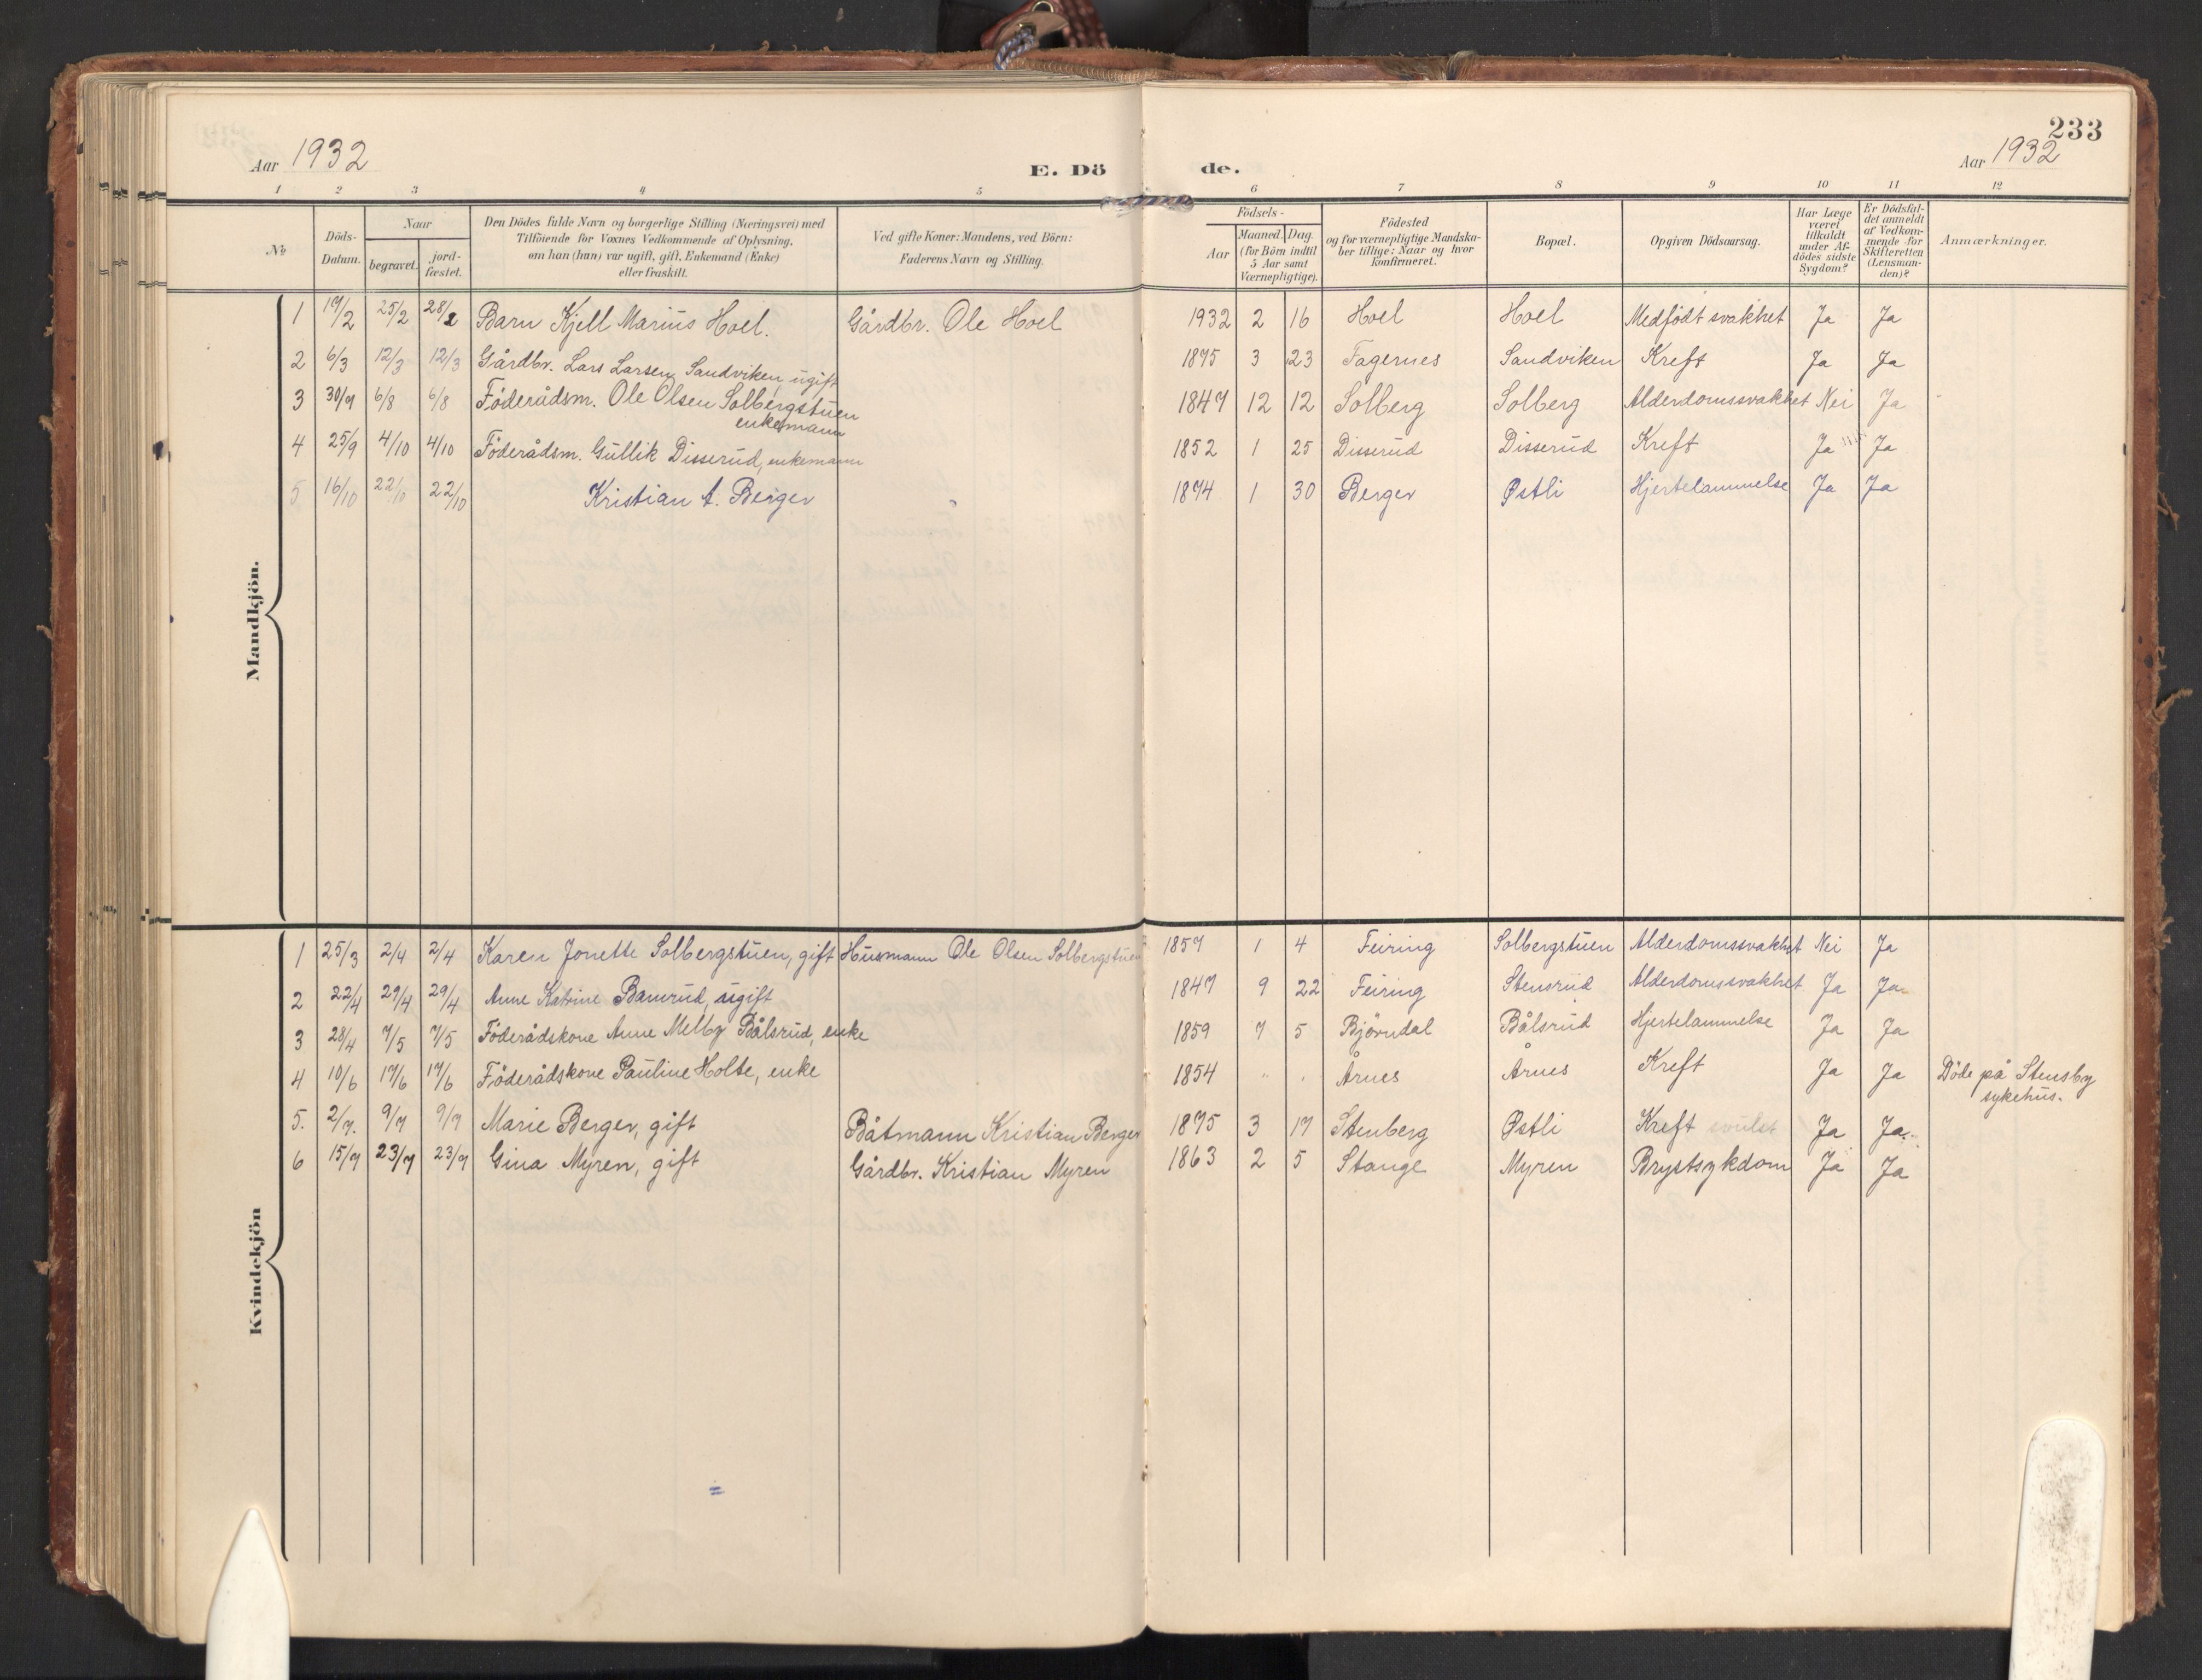 233
Aar 1932
E. Dö de.
Aar 1932
1 2 3 4 5 6 7 8 9 10 11 12
No
Döds-Datum.
Naar
begravet.
jord-fæstet.
Den Dödes fulde Navn og borgerlige Stilling (Næringsvei) med
Tilföiende for Voxnes Vedkommende af Oplysning,
om han (hun) var ugift, gift, Enkemand (Enke)
eller fraskilt.
Ved gifte Koner: Mandens, ved Börn:
Faderens Navn og Stilling.
Födsels-
Aar
Maaned. Dag.
(for Börn indtil
5 Aar samt
Værnepligtige).
Födested
og for værnepligtige Mandska-
ber tillige: Naar og hvor
konfirmeret.
Bopæl.
Opgiven Dödsaarsag.
Har Læge
været
tilkaldt
under Af-
dödes sidste
Sygdom?
Er Dödsfal-
det anmeldt
af Vedkom-
mende for
Skifteretten
(Lensman-
den)?
Anmærkninger.
Mandkjön.
1 17/2 25/2 28/2 Barn Kjell Marius Hoel. Gårdbr. Ole Hoel 1932 2 16 Hoel Hoel Medfödt svakhet Ja Ja
2 6/3 12/3 12/3 Gårdbr. Lars Larsen Sandviken, ugift 1875 3 23 Fagernes Sandviken Kreft Ja Ja
3 30/7 6/8 6/8 Föderådsm. Ole Olsen Solbergstuen 1847 12 12 Solberg Solberg Alderdomssvakhet Nei Ja
enkemann
4 25/9 4/10 4/10 Föderådsm. Gullik Disserud, enkemann 1852 1 25 Disserud Disserud Kreft Ja Ja
5 16/10 22/10 22/10 Kristian A. Berger 1874 1 30 Berger Østli Hjertelammelse Ja Ja
Kvindekjön
1 25/3 2/4 2/4 Karen Jonette Solbergstuen, gift Husmann Ole Olsen Solbergstuen 1857 1 4 Feiring Solbergstuen Alderdomssvakhet Nei Ja
2 22/4 29/4 29/4 Anne Katrine Bamrud, ugift 1847 9 22 Feiring Stensrud Alderdomssvakhet Ja Ja
3 28/4 7/5 7/5 Föderådskone Anne Melby Bålsrud, enke 1859 7 5 Björndal Bålsrud Hjertelammelse Ja Ja
4 10/6 17/6 17/6 Föderådskone Pauline Holte, enke 1854 " " Årnes Årnes Kreft Ja Ja Döde på Stensby
sykehus.
5. 2/7. 9/7 9/7 Marie Berger, gift Båtmann Kristian Berger 1875 3 17 Stenberg Østli Kreft svulst Ja Ja
6 15/7 23/7 23/7 Gina Myren, gift Gårdbr. Kristian Myren 1863 2 5 Stange Myren Brystsykdom Ja Ja